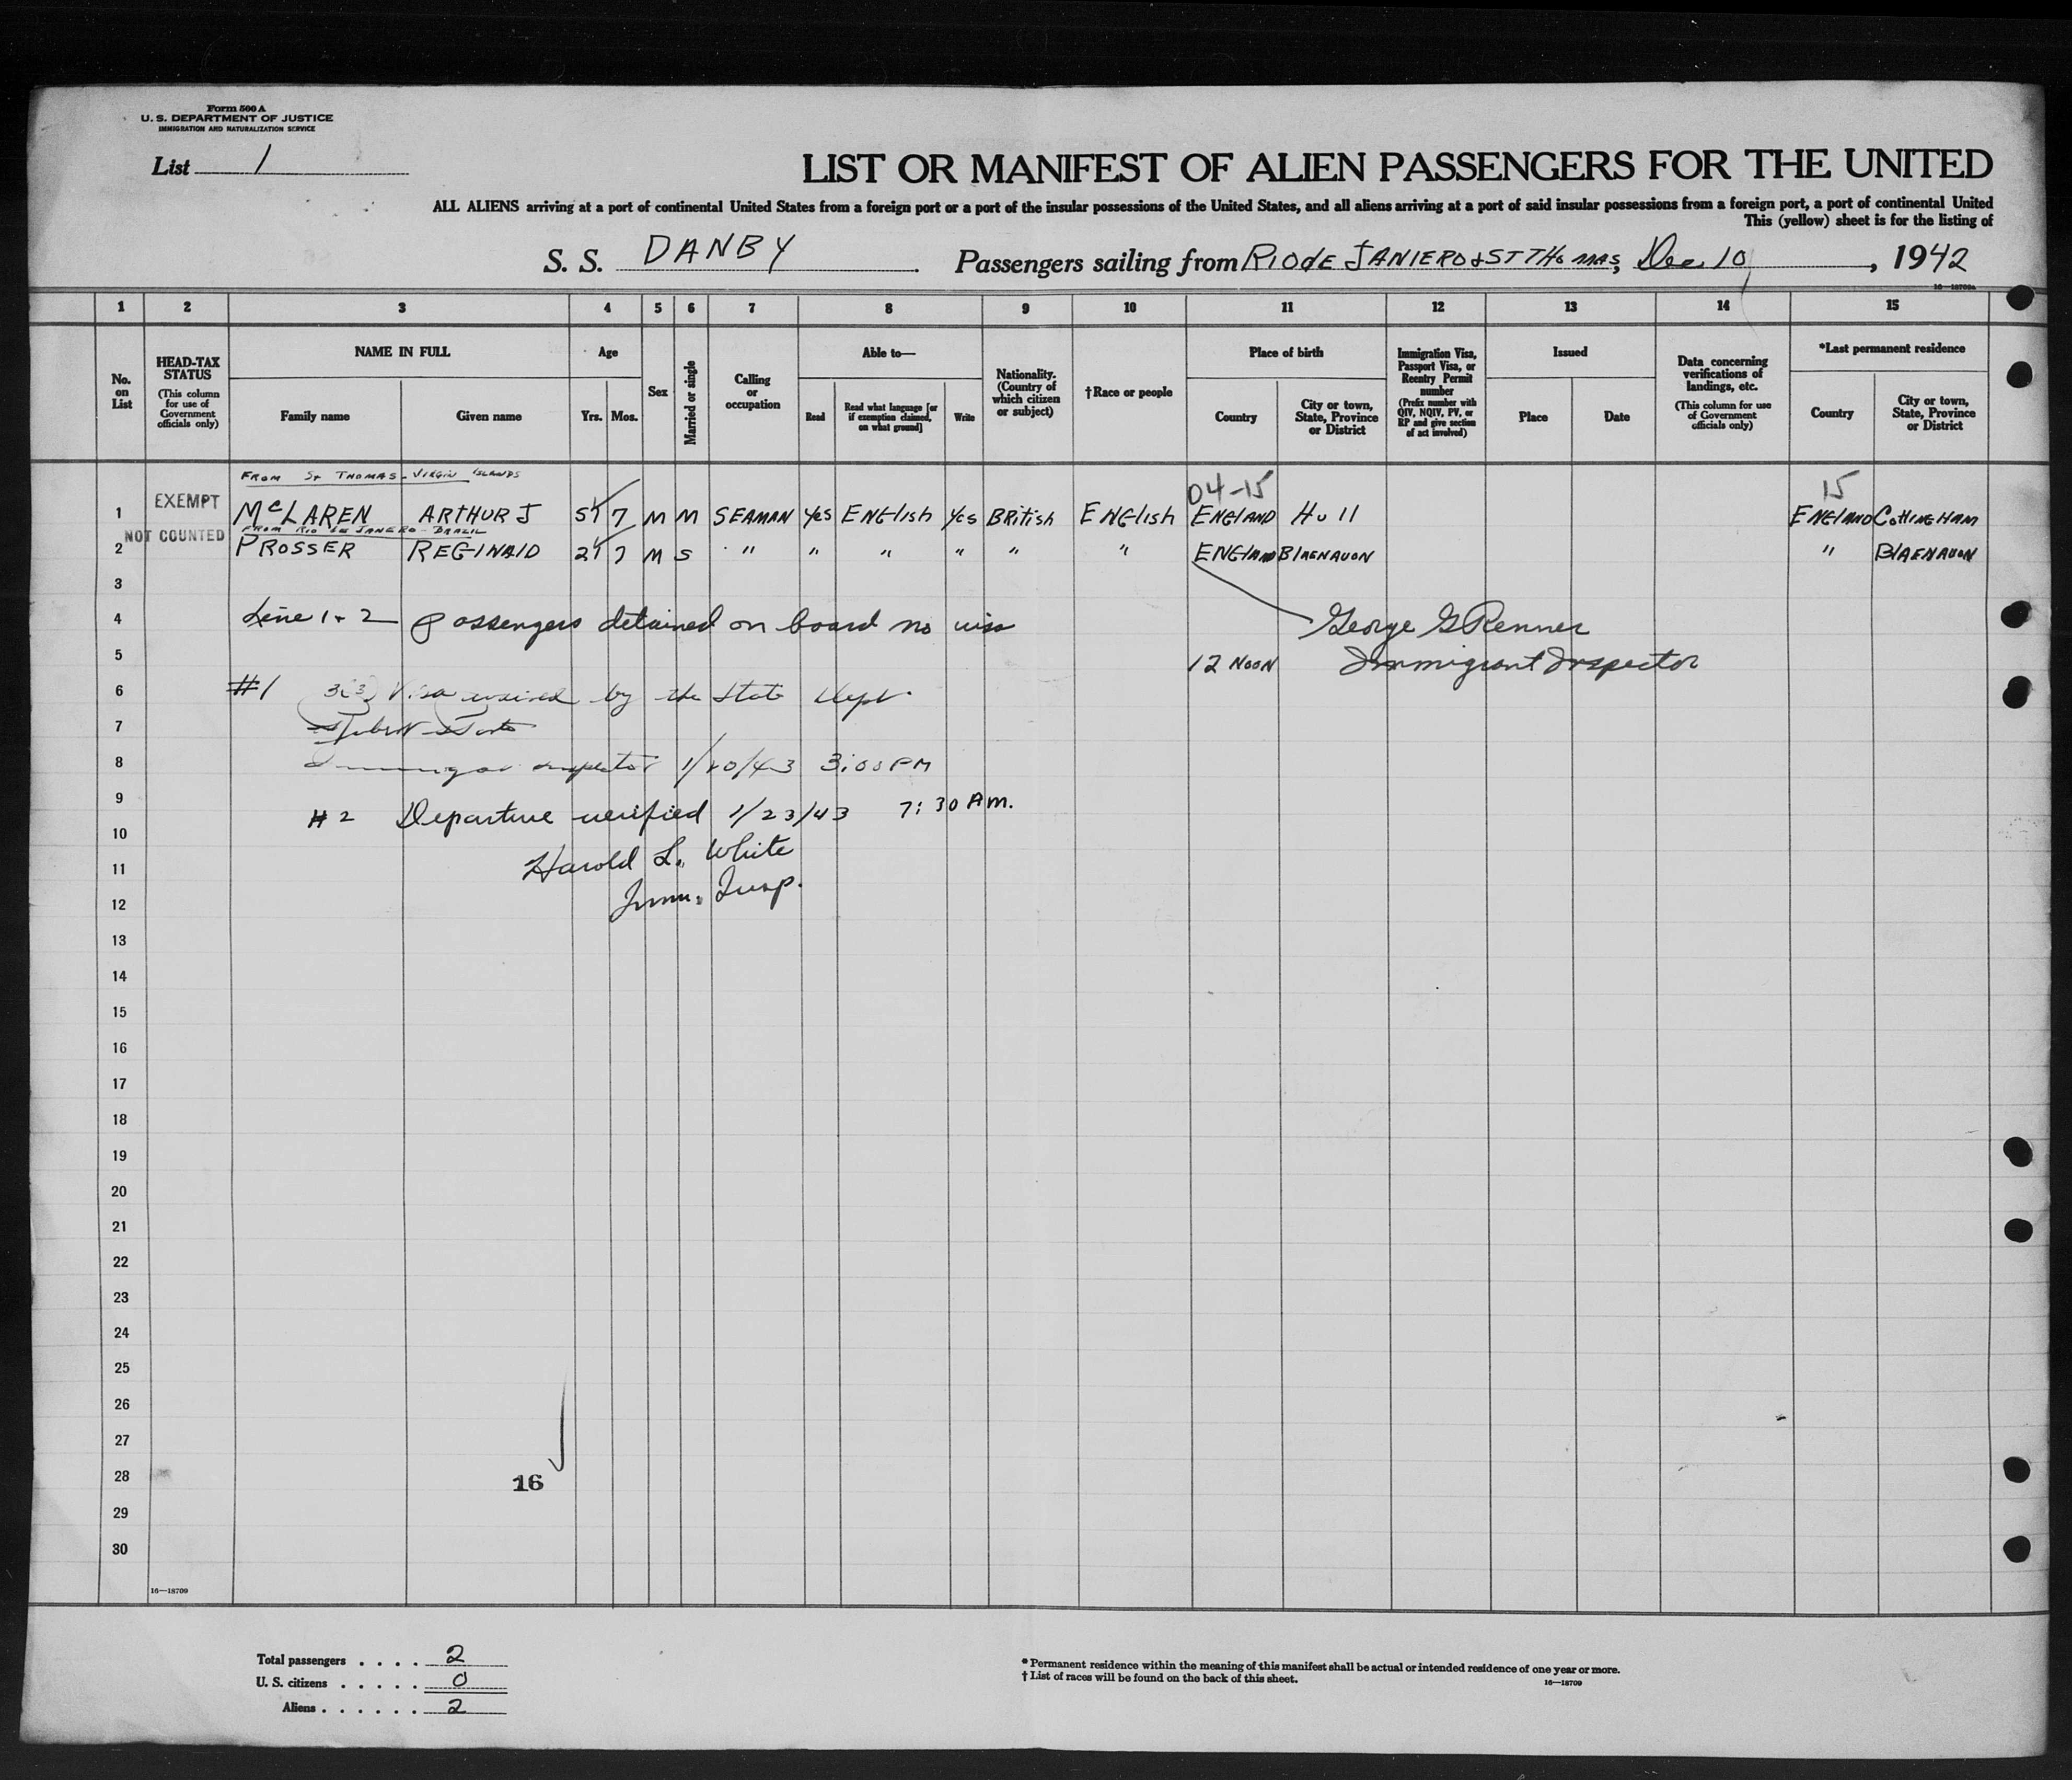 Form 500 A
U. S. DEPARTMENT OF JUSTICE
IMMIGRATION AND NATURALIZATION SERVICE
List 1
LIST OR MANIFEST OF ALIEN PASSENGERS FOR THE UNITED
ALL ALIENS arriving at a port of continental United States from a foreign port or a port of the insular possessions of the United States, and all aliens arriving at a port of said insular possessions from a foreign port, a port of continental United
This (yellow) sheet is for the listing of
S. S. DANBY Passengers sailing from RIO dE JANIERO & ST THOMAS, Dec 10, 1942
16—18709a
1 2 3 4 5 6 7 8 9 10 11 12 13 14 15
No. on List
HEAD-TAX STATUS
(This column for use of Government officials only)
NAME IN FULL
Family name
Given name
Age
Yrs.
Mos.
Sex
Married or single
Calling or occupation
Able to—
Read
Read what language [or if exemption claimed, on what ground]
Write
Nationality. (Country of which citizen or subject)
†Race or people
Place of birth
Country
City or town, State, Province or District
Immigration Visa, Passport Visa, or Reentry Permit number
(Prefix number with QIV, NQIV, PV, or RP and give section of act involved)
Issued
Place
Date
Data concerning verifications of landings, etc.
(This column for use of Government officials only)
*Last permanent residence
Country
City or town, State, Province or District
FROM St THOMAS - VIRGIN ISLANDS
04-15 15
1 EXEMPT McLAREN ARTHUR J 51 7 M M SEAMAN yes ENGlish yes BRitish ENGlish ENGLAND Hull ENGlAND CottinGHAM
NOT COUNTED FROM RIO DE JANERO - BRAZIL
2 PROSSER REGINAlD 21 7 M S " " " " " " ENGlAND BlAENAVON " BlAENAVON
3
4 Line 1 & 2 passengers detained on board no visa George G Renner
5 12 NOON Immigrant Inspector
6 #1 3(3) Visa waived by the State Dept.
7
8 Inspector 1/20/43 3:00 PM
9 #2 Departure verified 1/23/43 7:30 AM.
10
11 Harold L. White
12 Imm. Insp.
13
14
15
16
17
18
19
20
21
22
23
24
25
26
27
28 16
29
30
16—18709
Total passengers . . . . 2
U. S. citizens . . . . . 0
Aliens . . . . . . 2
* Permanent residence within the meaning of this manifest shall be actual or intended residence of one year or more.
† List of races will be found on the back of this sheet.
16—18709